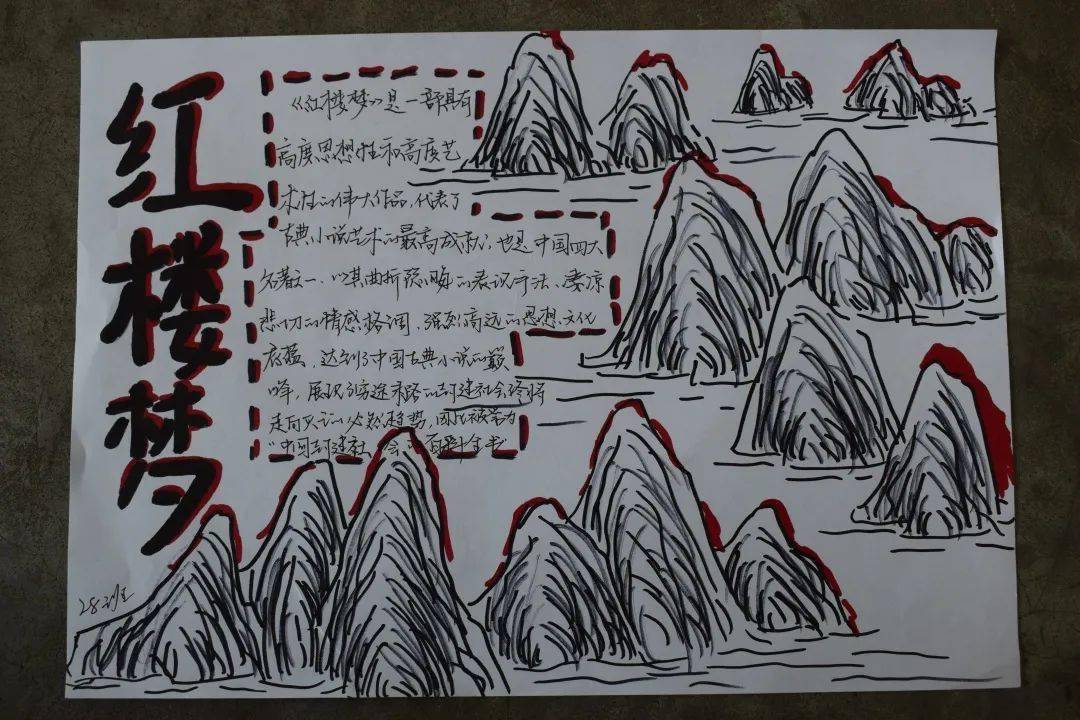 红楼梦
《红楼梦》是一部具有
高度思想性和高度艺
术性的伟大作品,代表了
古典小说艺术的最高成就,也是中国四大
名著之一、以其曲折隐晦的表识手法、凄凉
悲切的情感格调、强烈高远的思想文化
底蕴,达到了中国古典小说的巅
峰,展现了穷途末路的封建社会终将
走向灭亡的必然趋势,因此被誉为
"中国封建社会的百科全书"
28班